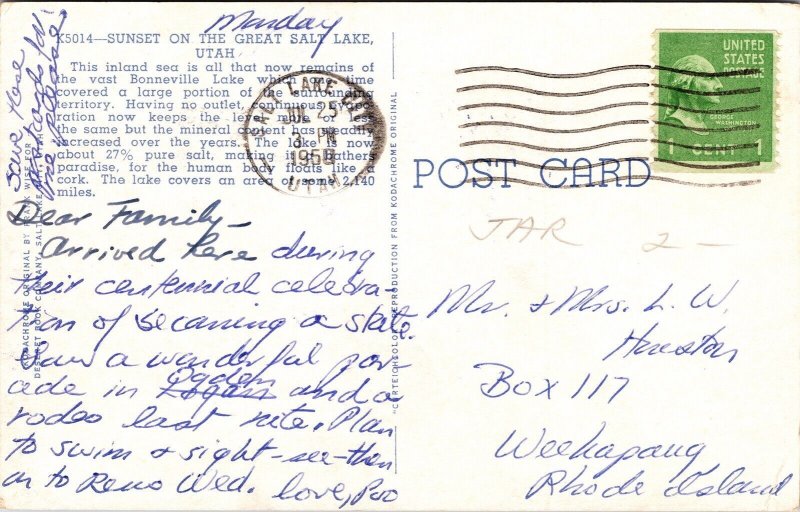 Monday
K5014—SUNSET ON THE GREAT SALT LAKE,
UTAH
This inland sea is all that now remains of
the vast Bonneville Lake which one time
covered a large portion of the surrounding
territory. Having no outlet, continuous evapo-
ration now keeps the level more or less
the same but the mineral content has steadily
increased over the years. The lake is now
about 27% pure salt, making it a bathers
paradise, for the human body floats like a
cork. The lake covers an area of some 2,140
miles.
Save these
Dear Family —
Arrived here during
their centennial celebra-
tion of becoming a state.
Saw a wonderful par-
ade in Ogden and a
rodeo last nite. Plan
to swim & sight-see—then
on to Reno Wed. Love,
KODACHROME ORIGINAL BY FRANK WISE FOR
DESERET BOOK COMPANY, SALT LAKE
"C.T. ART-COLORTONE" REPRODUCTION FROM KODACHROME ORIGINAL
SALT LAKE CITY
25
3 PM
1950
UTAH
UNITED
STATES
POSTAGE
GEORGE
WASHINGTON
1 CENT 1
POST CARD
JAR 2 —
Mr. & Mrs. L. W.
Heuston
BOX 117
Weekapaug
Rhode Island